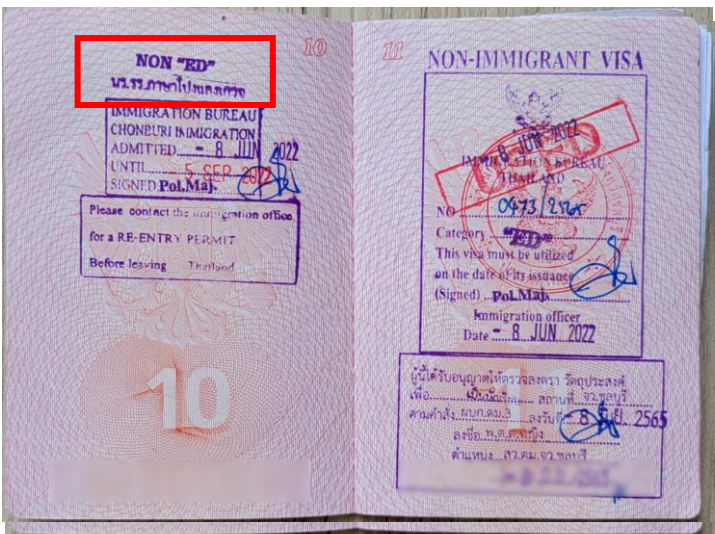 10
NON "ED"
นร.รร.ภาษา
IMMIGRATION BUREAU
CHONBURI IMMIGRATION
ADMITTED - 8 JUN 2022
UNTIL 5 SEP 2022
SIGNED Pol.Maj.
Please contact the immigration office
for a RE-ENTRY PERMIT
Before leaving Thailand
10
11
NON-IMMIGRANT VISA
8 JUN 2022
IMMIGRATION BUREAU
THAILAND
NO 0473/2565
Category "ED"
This visa must be utilized
on the date of its issuance
(Signed) Pol.Maj.
Immigration officer
Date - 8 JUN 2022
ผู้นี้ได้รับอนุญาตให้ตรวจลงตรา วัตถุประสงค์
เพื่อ สถานที่ จว.ชลบุรี
ตามคำสั่ง ผบก.ตม.3 ลงวันที่ - 8 มิ.ย. 2565
ลงชื่อ พ.ต.ต.หญิง
ตำแหน่ง สว.ตม.จว.ชลบุรี
11